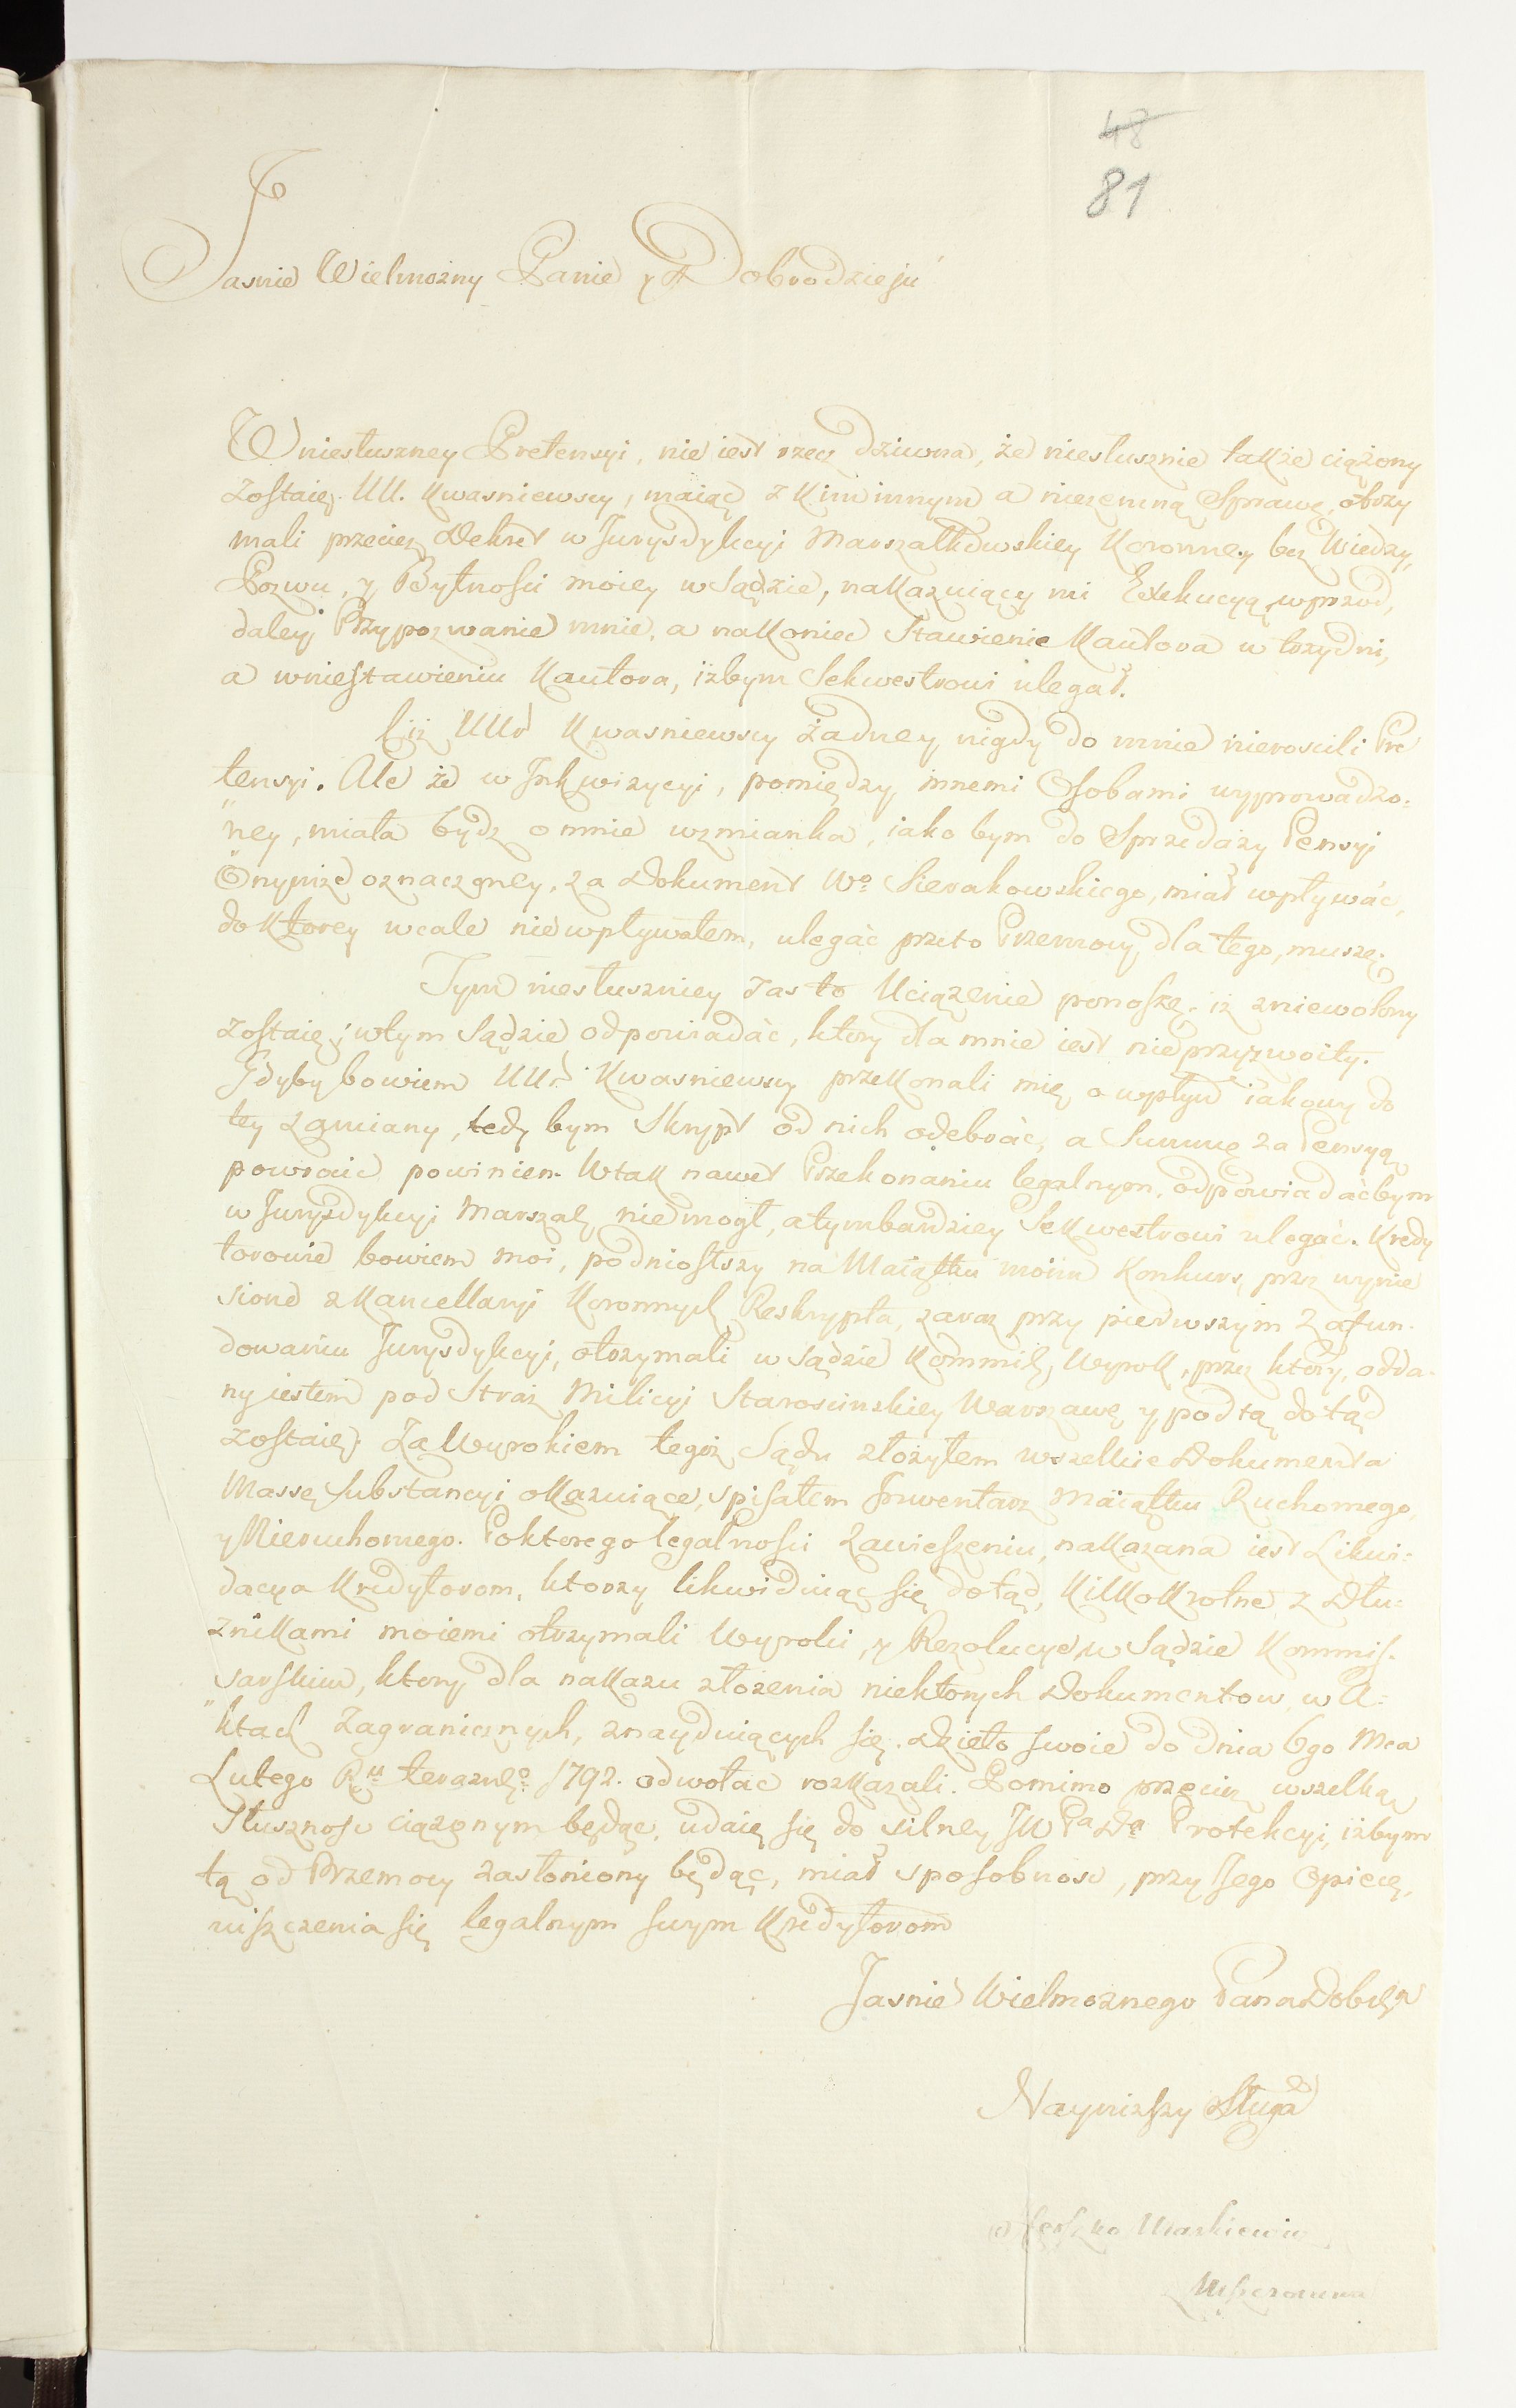 48
81
Jasnie Wielmożny Panie y Dobrodzieju
W niesłuszney Pretensyi, nie iest rzecz dziwna, że niesłusznie także ciążony
zostaię. UU. Kwasniewscy, maiąc z kim innym a niezemną Sprawę, otrzy
mali przeciesz Dekret w Jurysdykcyi Marszałkowskiey Koronney bez Wiedzy,
Pozwu, y Bytnosci moiey w Sądzie, nakazuiący mi Exekucyą wprzod,
daley Przypozwanie mnie, a nakoniec Stawienie Kautora w trzy dni,
a wniestawieniu Kautora, iżbym Sekwestrowi ulegał.
Ciż UUr Kwasniewscy żadney nigdy do mnie nierościli Pre
tensyi. Ale że w Inkwizycyi, pomiędzy innemi Osobami wyprowadzo=
"ney, miała bydz o mnie wzmianka, iako bym do Sprzedaży Pensyi
Onymże oznaczoney, za Dokument Wo Sierakowskiego, miał wpływać,
do ktorey wcale nie wpływałem, ulegać przeto Przemocy dla tego, muszę.
Tym niesłuszniey zas to Uciążenie ponoszę. iż zniewolony
zostaię; w tym Sądzie odpowiadać, ktory dla mnie iest nieprzyzwoity.
Gdyby bowiem UUr Kwasniewscy przekonali mię o wpływ iakowy do
tey zamiany, tedy bym Skrypt od nich odebrać, a Summę za Pensyą
powrocić powinien. W tak nawet Przekonaniu legalnym, odpowiadać bym
w Jurysdykcyi Marszał: niemogł, a tym bardziey Sekwestrowi ulegać. Kredy
torowie bowiem moi, podniosłszy na Maiątku moim Konkurs, przez wynie
sione z Kancellaryi Koronnych Reskrypta, zaraz przy pierwszym Zafun.
dowaniu Jurysdykcyi, otrzymali w Sądzie Kommis: Wyrok, przez ktory, odda.
ny iestem pod Straż Milicyi Staroscinskiey Warszaws: y pod tą dotąd
zostaię. Za Wyrokiem tegoż Sądu złożyłem wszelkie Dokumenta
Massę Substancyi okazuiące, spisałem Inwentarz Maiątku Ruchomego,
y Nieruchomego. Po ktorego legalnosci Zawieszeniu, nakazana iest Likwi=
dacya Kredytorom, ktorzy likwiduiąc się dotąd, kilkokrotne z Dłu=
znikami moiemi otrzymali Wyroki, y Rezolucye w Sądzie Kommis=
sarskim, ktory dla nakazu złożenia niektorych Dokumentow w A=
"ktach Zagranicznych, znayduiących się. Dzieło swoie do dnia 6go Mca
Lutego Ru teraznego 1792. odwołać rozkazali. Pomimo przeciez wszelką
Słusznosc ciążonym będąc, udaię się do silney JW Pa Da Protekcyi, iżbym
tą od Przemocy zasłoniony będąc, miał sposobnosc, przy Jego Opiece,
uiszczenia się legalnym swym Kredytorom
Jasnie Wielmoznego Pana Dobdz:a
Naynizszy Sługa
Maskiewicz